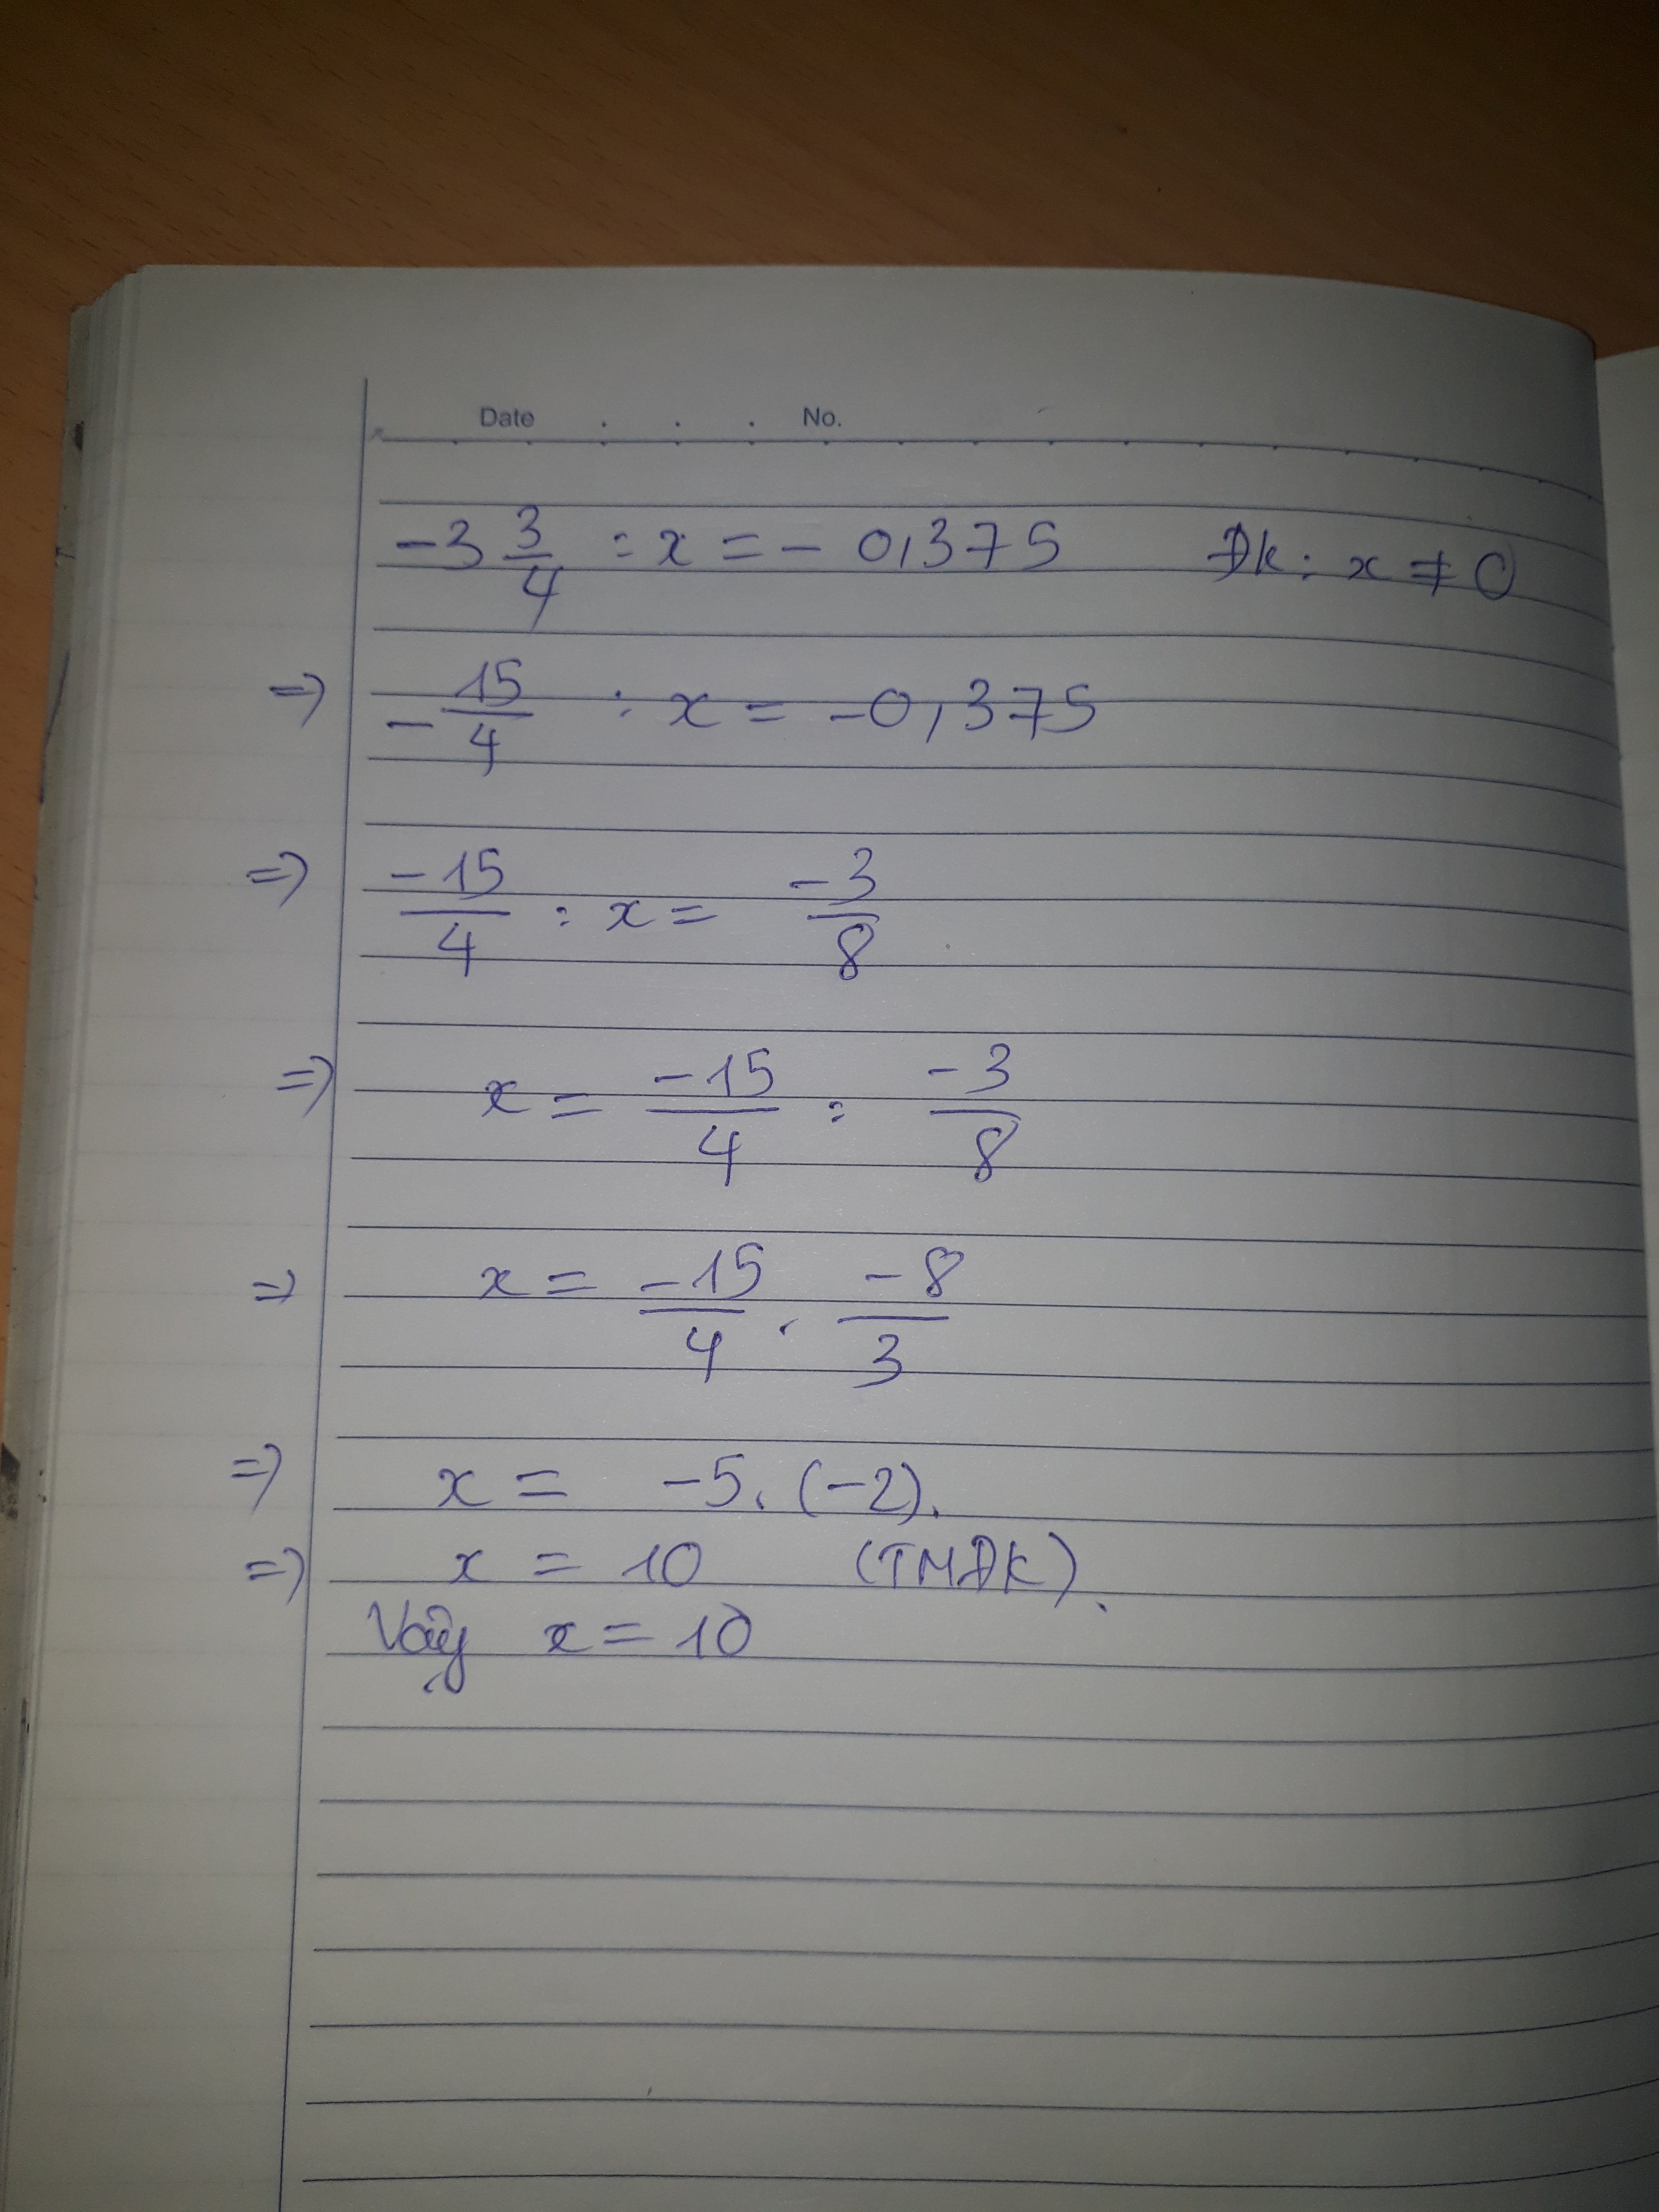 Date . . . No.
-3 3/4 : x = - 0,375 ĐK: x ≠ 0
=> - 15/4 : x = -0,375
=> -15/4 : x = -3/8
=> x = -15/4 : -3/8
=> x = -15/4 . -8/3
=> x = -5. (-2).
=> x = 10 (TMĐK).
Vậy x = 10